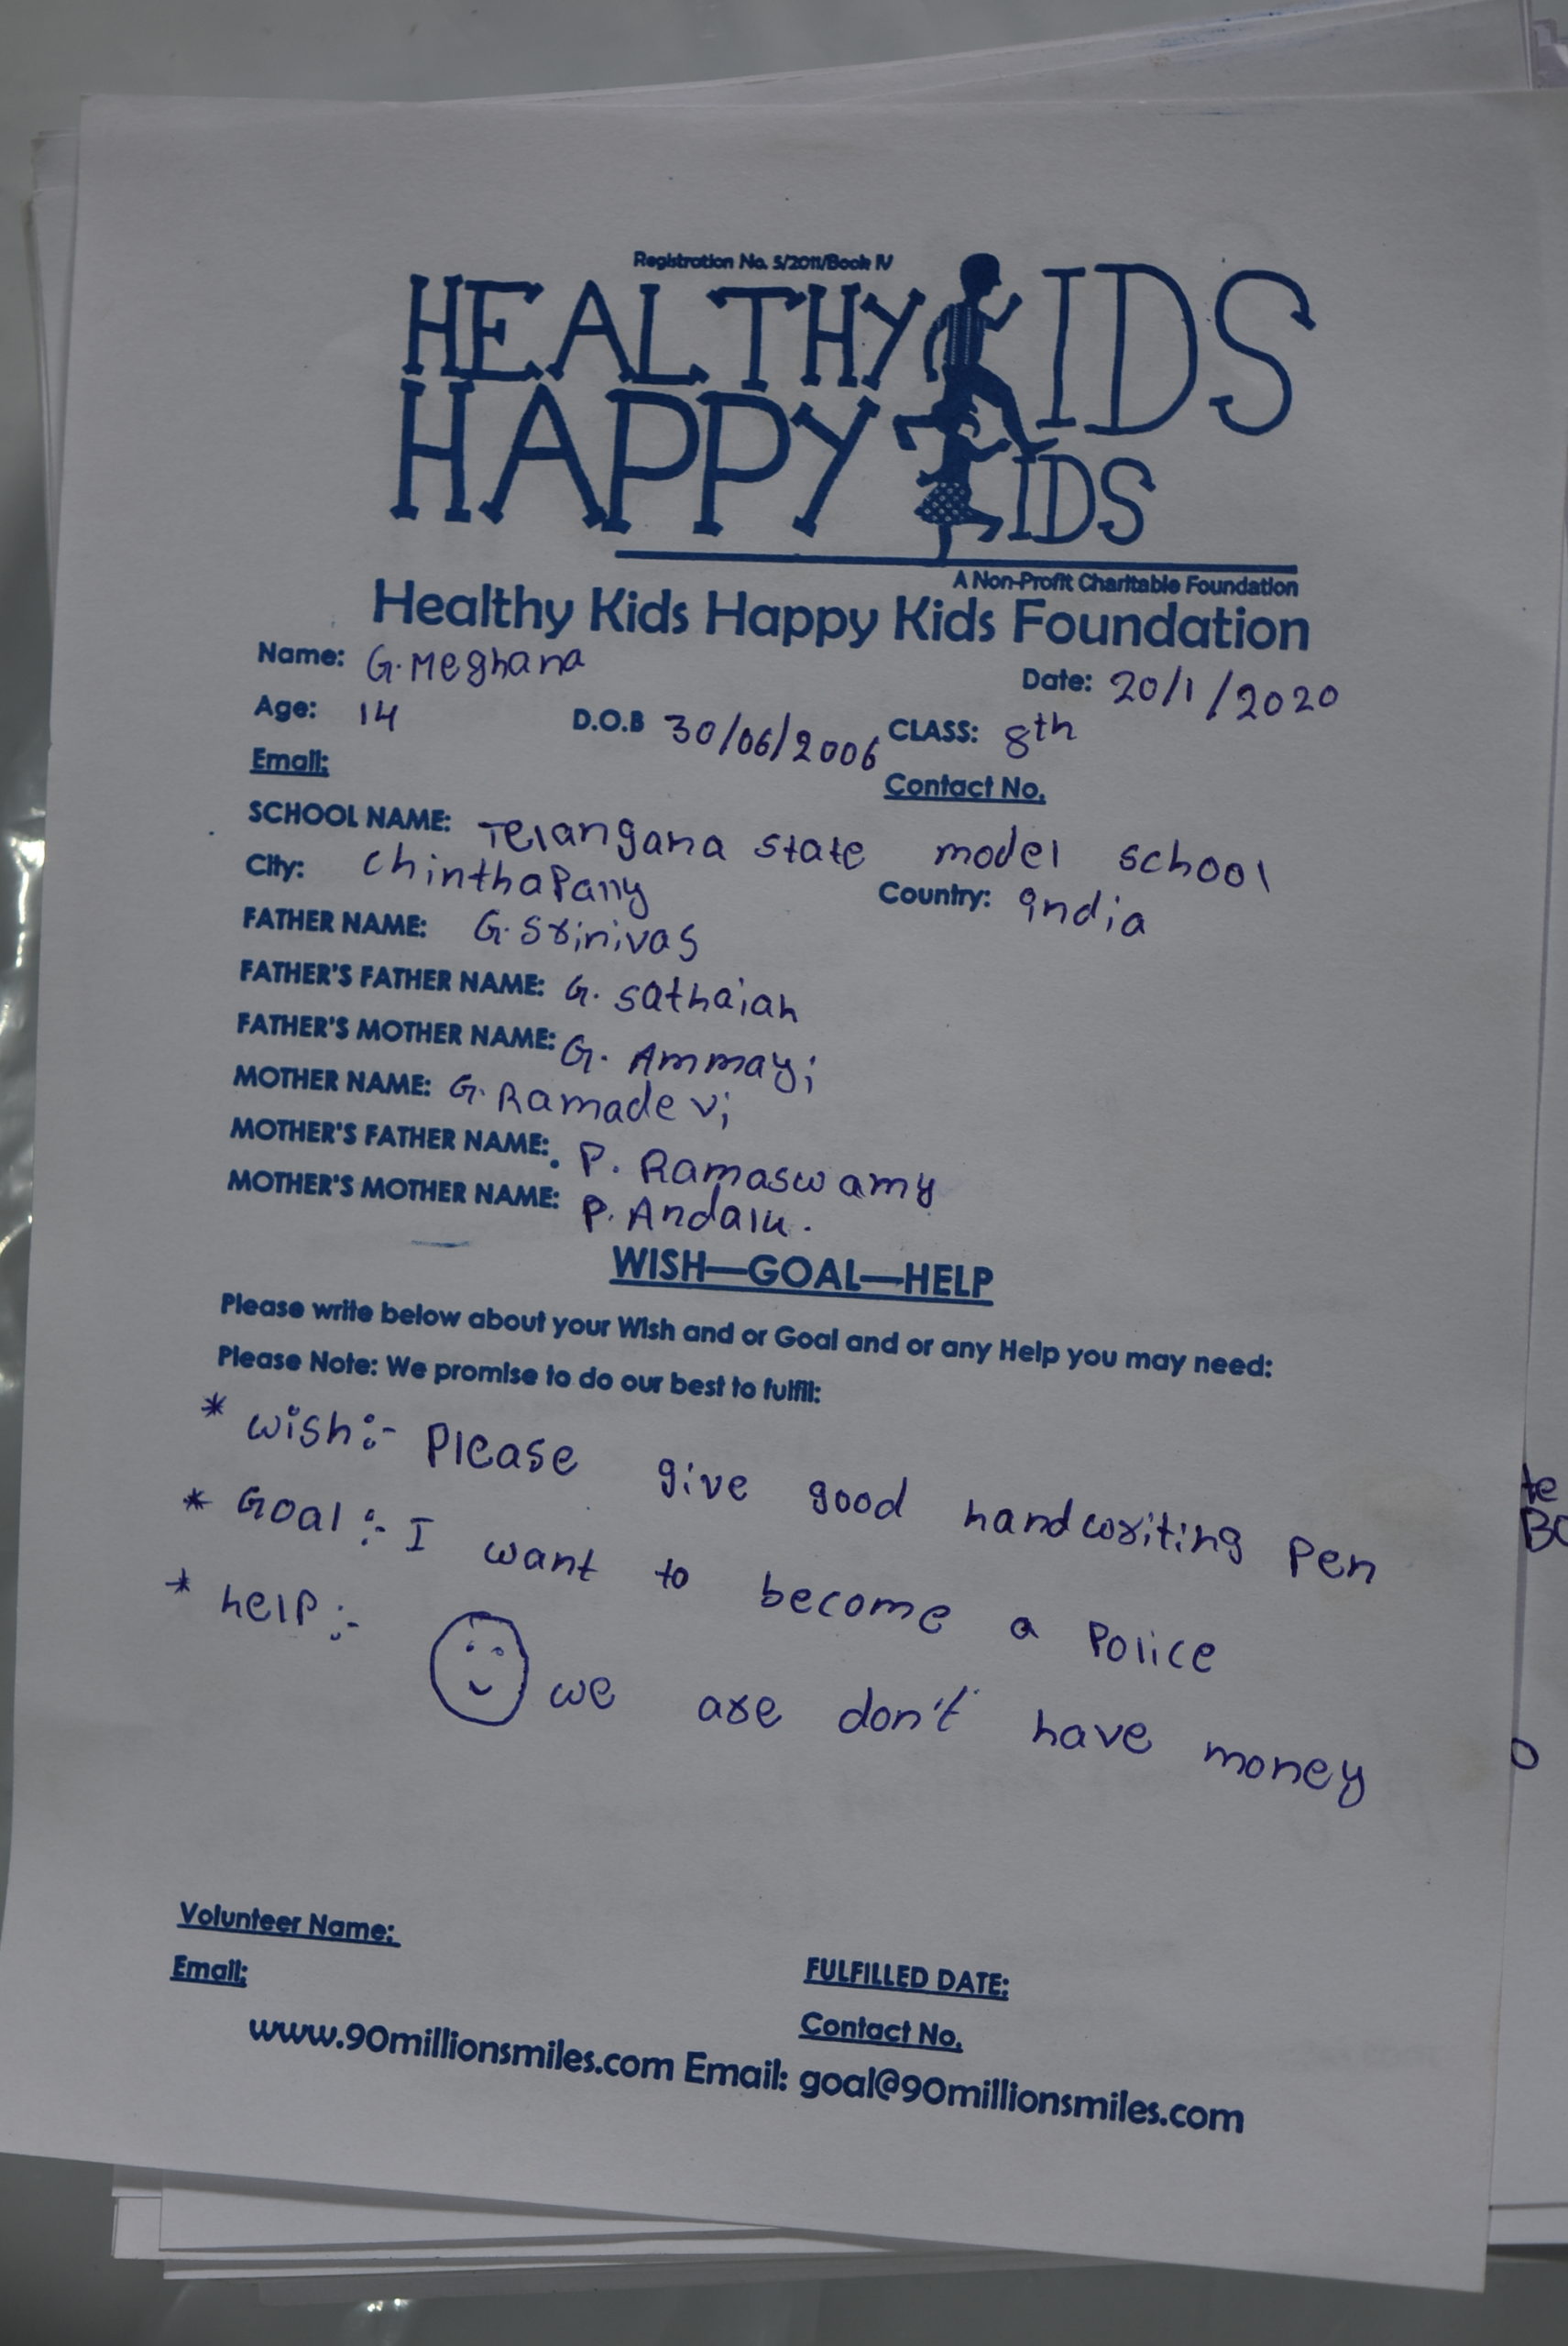 Registration No. 5/2011/Book IV
HEALTHY KIDS
HAPPY KIDS
A Non-Profit Charitable Foundation
Healthy Kids Happy Kids Foundation
Name: G.Meghana Date: 20/1/2020
Age: 14 D.O.B 30/06/2006 CLASS: 8th
Email: Contact No.
SCHOOL NAME: Telangana state model school
City: chinthapally Country: india
FATHER NAME: G.Srinivas
FATHER'S FATHER NAME: G. sathaiah
FATHER'S MOTHER NAME: G. Ammayi
MOTHER NAME: G.Ramadevi
MOTHER'S FATHER NAME: P. Ramaswamy
MOTHER'S MOTHER NAME: P. Andalu.
WISH—GOAL—HELP
Please write below about your Wish and or Goal and or any Help you may need:
Please Note: We promise to do our best to fulfil:
* wish:- Please give good handwriting Pen
* Goal:- I want to become a Police
* help:- we are don't have money
Volunteer Name: FULFILLED DATE:
Email: Contact No.
www.90millionsmiles.com Email: goal@90millionsmiles.com